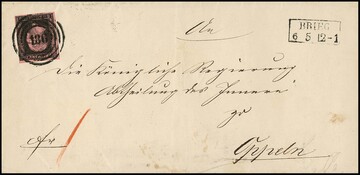 186
BRIEG
6 5 12-1
An
die Königliche Regierung
Abtheilung des Innern
zu
Oppeln
fr